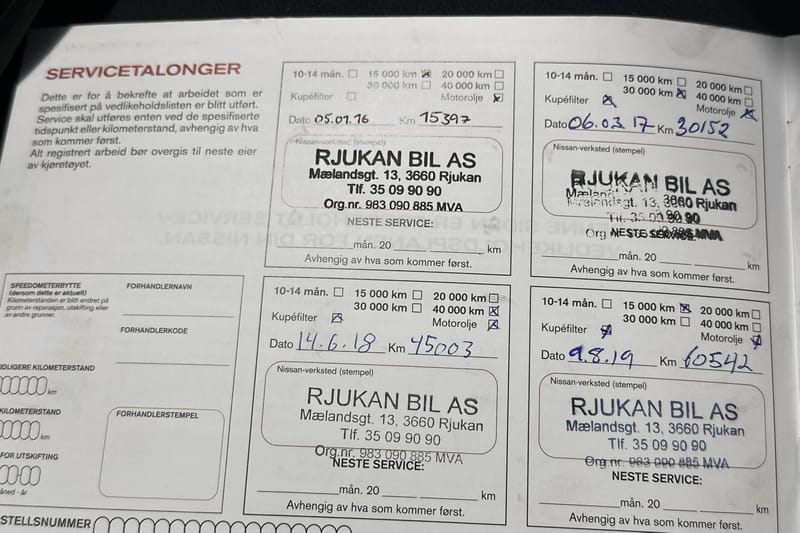 SERVICETALONGER
Dette er for å bekrefte at arbeidet som er
spesifisert på vedlikeholdslisten er blitt utført.
Service skal utføres enten ved de spesifiserte
tidspunkt eller kilometerstand, avhengig av hva
som kommer først.
Alt registrert arbeid bør overgis til neste eier
av kjøretøyet.
10-14 mån. 15 000 km 20 000 km
30 000 km 40 000 km
Kupéfilter Motorolje
Dato 05.01.16 Km 15397
Nissan-verksted (stempel)
RJUKAN BIL AS
Mælandsgt. 13, 3660 Rjukan
Tlf. 35 09 90 90
Org.nr. 983 090 885 MVA
NESTE SERVICE:
mån. 20 km
Avhengig av hva som kommer først.
10-14 mån. 15 000 km 20 000 km
30 000 km 40 000 km
Kupéfilter Motorolje
Dato 06.03.17 Km 30152
Nissan-verksted (stempel)
RJUKAN BIL AS
Mælandsgt. 13, 3660 Rjukan
Tlf. 35 09 90 90
NESTE SERVICE:
mån. 20 km
Avhengig av hva som kommer først.
SPEEDOMETERBYTTE
(dersom dette er aktuelt)
Kilometerstanden er blitt endret på
grunn av reparasjon, utskifting eller
av andre grunner.
FORHANDLERNAVN
FORHANDLERKODE
IDLIGERE KILOMETERSTAND
km
KILOMETERSTAND
km
FOR UTSKIFTING
åned - år
FORHANDLERSTEMPEL
STELLSNUMMER
10-14 mån. 15 000 km 20 000 km
30 000 km 40 000 km
Kupéfilter Motorolje
Dato 14.6.18 Km 45003
Nissan-verksted (stempel)
RJUKAN BIL AS
Mælandsgt. 13, 3660 Rjukan
Tlf. 35 09 90 90
Org.nr. 983 090 885 MVA
NESTE SERVICE:
mån. 20 km
Avhengig av hva som kommer først.
10-14 mån. 15 000 km 20 000 km
30 000 km 40 000 km
Kupéfilter Motorolje
Dato 9.8.19 Km 60542
Nissan-verksted (stempel)
RJUKAN BIL AS
Mælandsgt. 13, 3660 Rjukan
Tlf. 35 09 90 90
Org.nr. 983 090 885 MVA
NESTE SERVICE:
mån. 20 km
Avhengig av hva som kommer først.